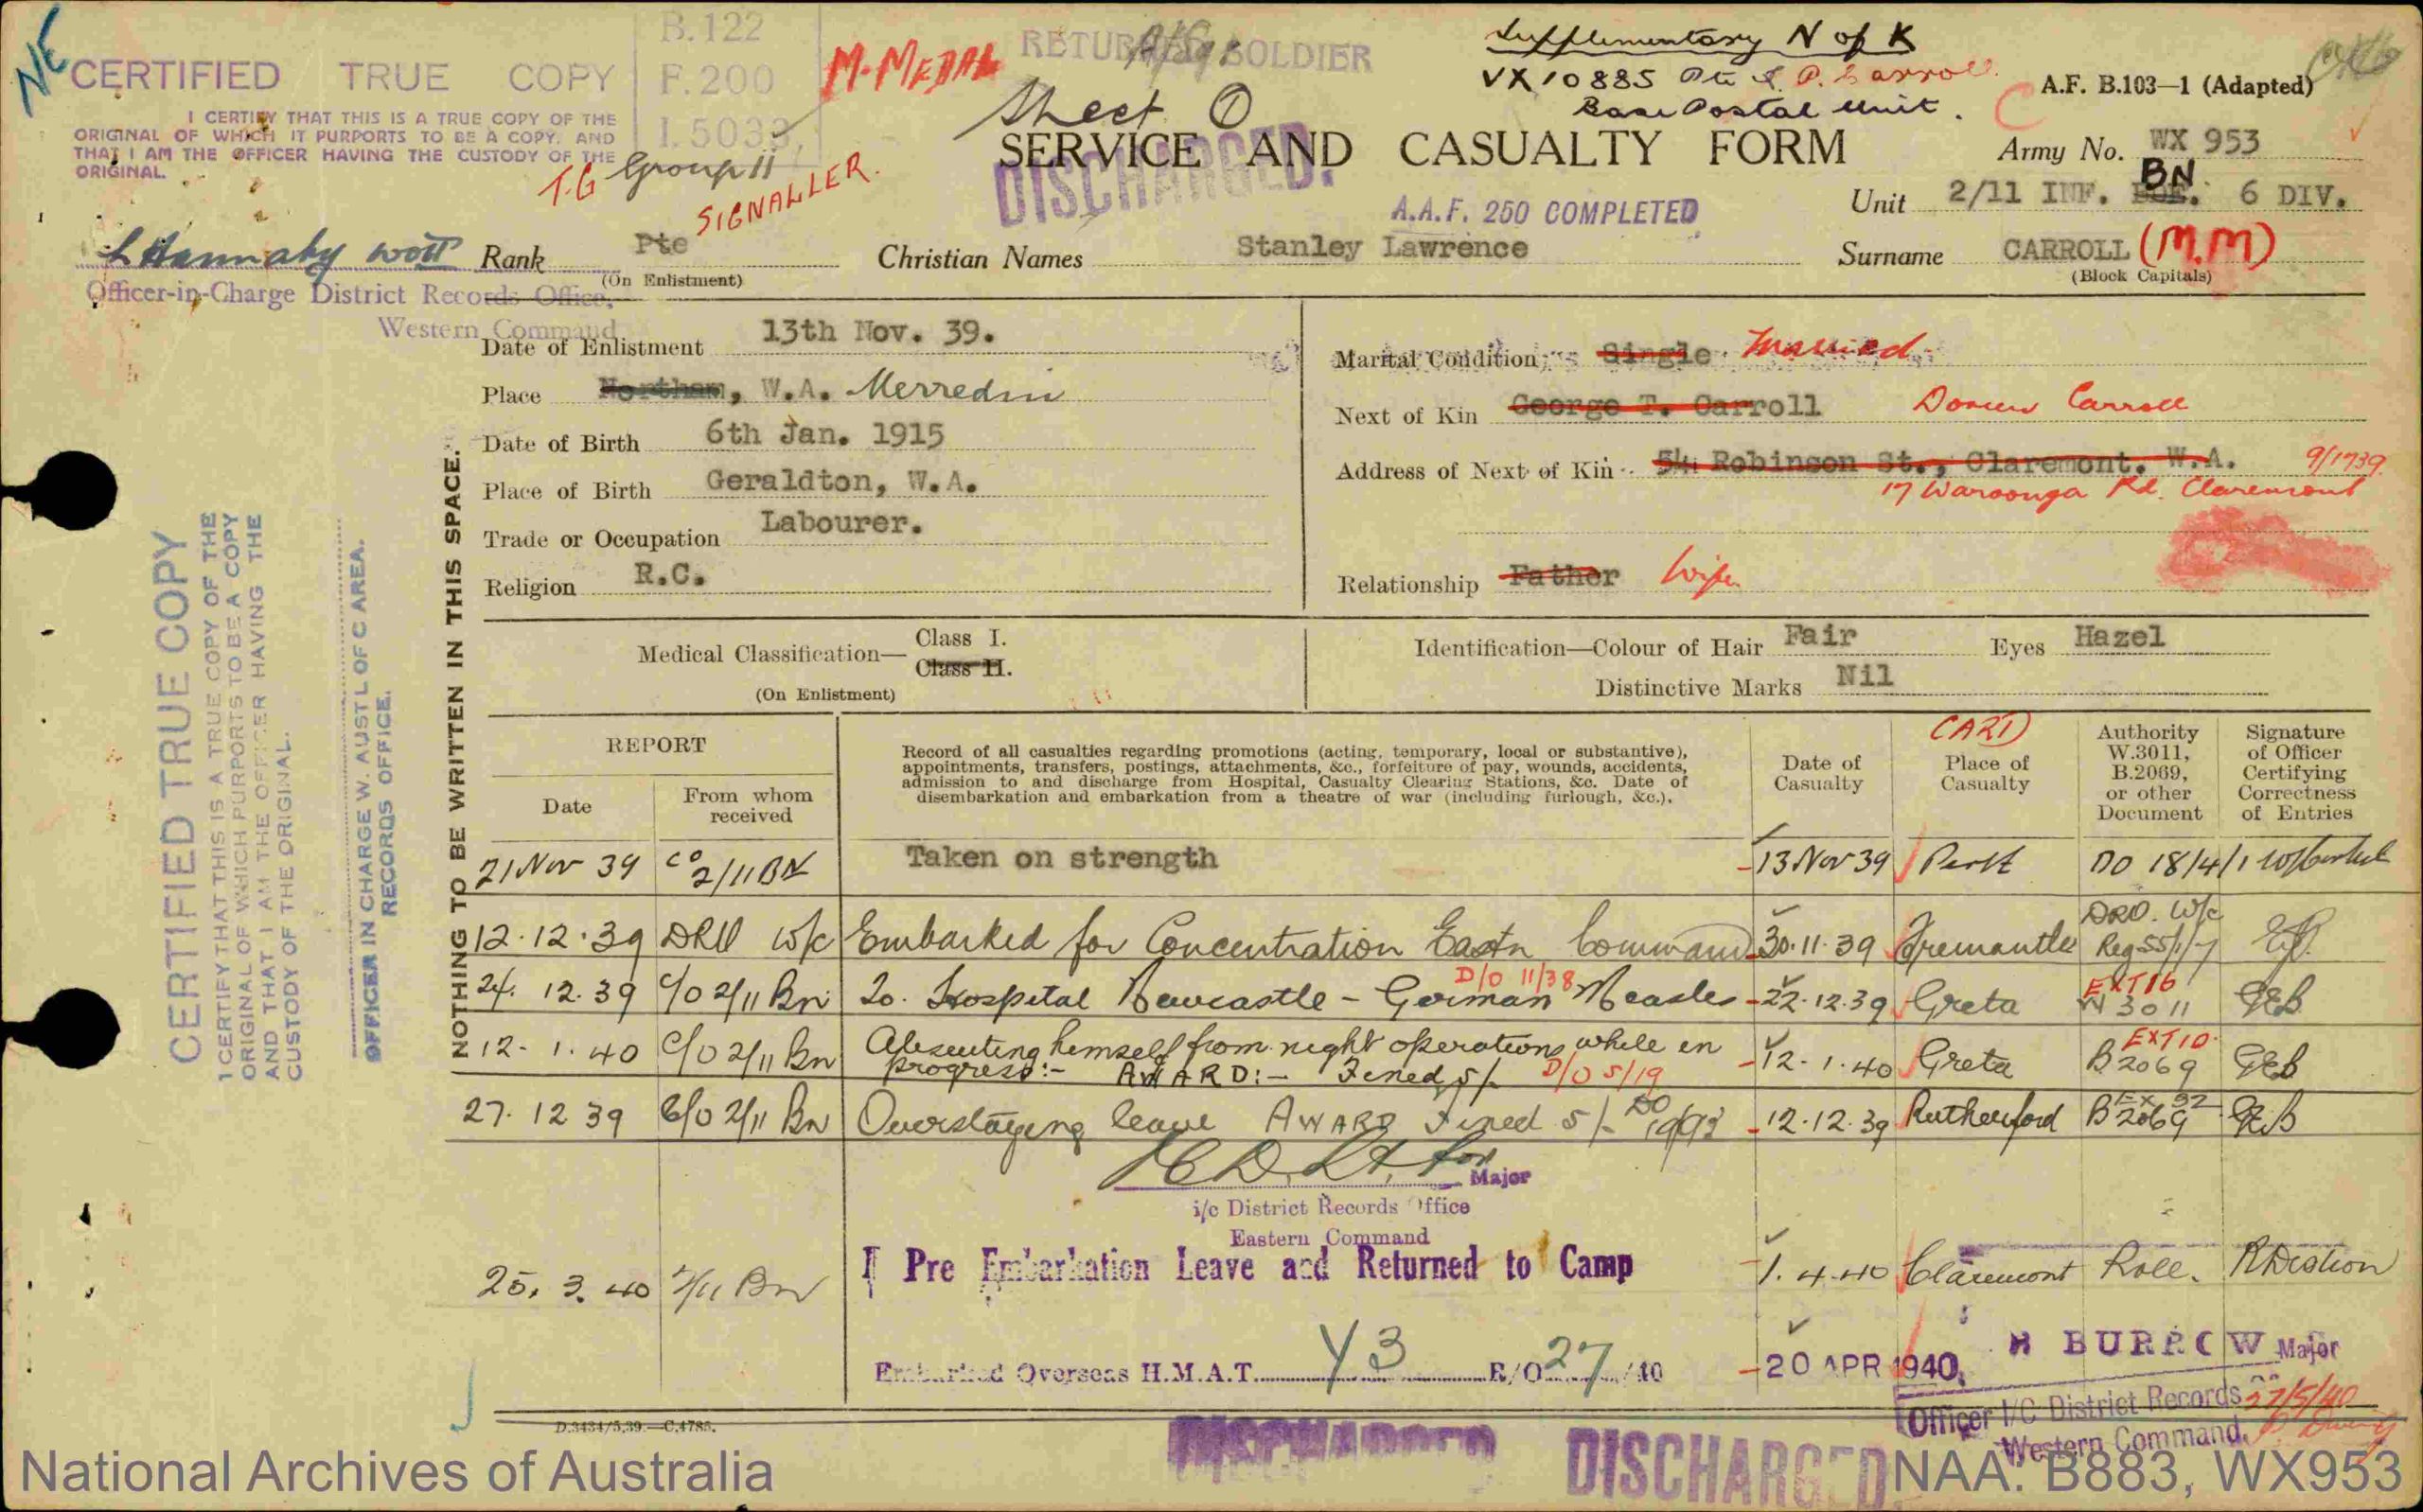 NE
B.122
F.200
I.5033
CERTIFIED TRUE COPY
I CERTIFY THAT THIS IS A TRUE COPY OF THE
ORIGINAL OF WHICH IT PURPORTS TO BE A COPY, AND
THAT I AM THE OFFICER HAVING THE CUSTODY OF THE
ORIGINAL.
M. MEDAL
RETURNED SOLDIER
Supplementary N of K
VX 10885 Pte
Carroll
Base Postal Unit.
A.F. B.103—1 (Adapted)
Sheet 1
SERVICE AND CASUALTY FORM
DISCHARGED.
Army No. WX 953
T.G Group 11
SIGNALLER.
A.A.F. 250 COMPLETED
BN
Unit 2/11 INF. 6 DIV.
Rank Pte
(On Enlistment)
Christian Names Stanley Lawrence
Surname CARROLL (M.M)
(Block Capitals)
Officer-in-Charge District Records Office,
Western Command
Date of Enlistment 13th Nov. 39.
Place Northam, W.A. Merredin
Date of Birth 6th Jan. 1915
Place of Birth Geraldton, W.A.
Trade or Occupation Labourer.
Religion R.C.
Marital Condition Single Married
Next of Kin George T. Carroll Carroll
Address of Next of Kin 54 Robinson St., Claremont. W.A. 9/1739.
17 Waroonga Rd. Claremont
Relationship Father Wife
Medical Classification— Class I.
Class II.
(On Enlistment)
Identification—Colour of Hair Fair Eyes Hazel
Distinctive Marks Nil
NOTHING TO BE WRITTEN IN THIS SPACE.
CERTIFIED TRUE COPY
I CERTIFY THAT THIS IS A TRUE COPY OF THE
ORIGINAL OF WHICH PURPORTS TO BE A COPY
AND THAT I AM THE OFFICER HAVING THE
CUSTODY OF THE ORIGINAL.
OFFICER IN CHARGE W. AUST L OF C AREA.
RECORDS OFFICE.
REPORT
Date
From whom received
Record of all casualties regarding promotions (acting, temporary, local or substantive),
appointments, transfers, postings, attachments, &c., forfeiture of pay, wounds, accidents,
admission to and discharge from Hospital, Casualty Clearing Stations, &c. Date of
disembarkation and embarkation from a theatre of war (including furlough, &c.).
Date of Casualty
CARD
Place of Casualty
Authority W.3011, B.2069, or other Document
Signature of Officer Certifying Correctness of Entries
21 Nov 39 CO 2/11 BN Taken on strength 13 Nov 39 Perth DO 18/4/1
12.12.39 DRO W/C Embarked for Concentration Eastn Command 30.11.39 Fremantle DRO. W/C Reg 55/1/7
24.12.39 C/O 2/11 Bn To. Hospital Newcastle - German Measles D/O 11/38 22.12.39 Greta EXT16 W 3011 GEB
12.1.40 C/O 2/11 Bn Absenting himself from night operations while in
progress:- AWARD:- Fined 5/- D/O 5/19 12.1.40 Greta EXT10. B2069 GEB
27.12.39 C/O 2/11 Bn Overstaying leave AWARD Fined 5/- 12.12.39 Rutherford B2069 GEB
Major
i/c District Records Office
Eastern Command
25.3.40 2/11 Bn Pre Embarkation Leave and Returned to Camp 1.4.40 Claremont Roll.
Embarked Overseas H.M.A.T. Y3 R/O 27/40 20 APR 1940.
BURROW Major
Officer I/C District Records
Western Command.
27/5/40
D.3434/5.39.—C.4785.
DISCHARGED
DISCHARGED.
National Archives of Australia
NAA: B883, WX953